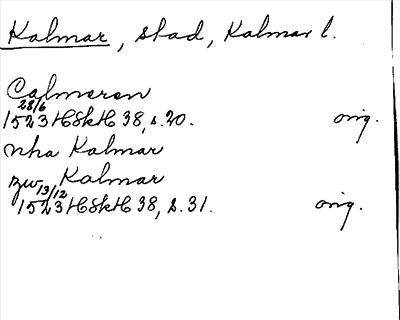 Kalmar, stad, Kalmar l.
Calmeren
28/6
1523 HSkH 38, s. 20. orig.
nha Kalmar
zw Kalmar
13/12
1523 HSkH 38, s. 31. orig.